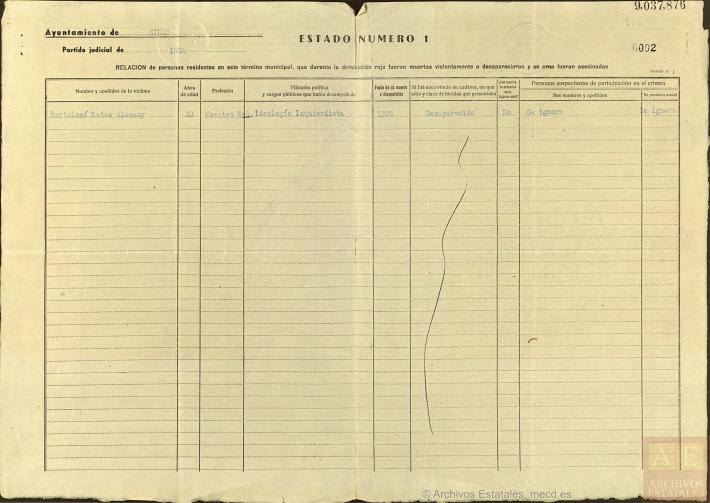 9.037.876
Ayuntamiento de
ESTADO NUMERO 1
Partido judicial de INCA
0002
RELACION de personas residentes en este término municipal, que durante la dominación roja fueron muertas violentamente o desaparecieron y se cree fueran asesinadas
Nombre y apellidos de la víctima
Años de edad
Profesión
Filiación política y cargos públicos que había desempeñado
Fecha de su muerte o desaparición
Si fué encontrado su cadáver, en que sitio y clase de heridas que presentaba
Personas sospechosas de participación en el crimen
Sus nombres y apellidos
Su paradero actual
Bartolomé Mates Alemany 33 Maestro Nal. Ideología Izquierdista 1936 Desaparecido No Se ignora Se ignora
AE
ARCHIVOS
ESTATALES
© Archivos Estatales, mecd.es